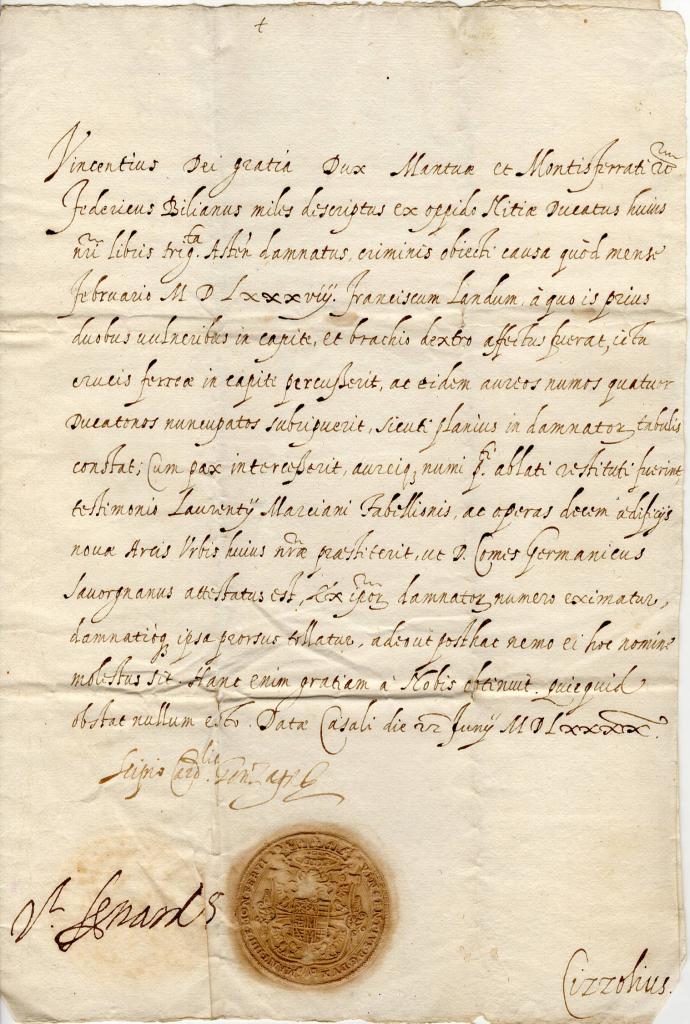 Vincentius Dei gratia Dux Mantuæ et Montisferrati
Federicus Bilianus miles descriptus ex oppido Nitiæ Ducatus huius
nrĩ libris trig.ta Asteñ damnatus, criminis obiecti causa quòd mense
februario M D Lxxxviij. franciscum Landum, à quo is prius
duobus vulneribus in capite, et brachio dextro affectus fuerat, ictu
crucis ferreæ in capite percußerit, ac eidem aureos numos quatuor
Ducatonos nuncupatos subripuerit, sicuti planius in damnator tabulis
constat; Cum pax interceßerit, aureiq; numi ablati restituti fuerint,
testimonio Laurentÿ Marciani Tabellionis, ac operas decem ædificÿs
novæ Arcis Urbis huius nr̃æ præstiterit, ut D. Comes Germanicus
Savorgnanus attestatus est, Ex ip̃or damnator numero eximatur,
damnatioq; ipsa prorsus tollatur, adeout posthac nemo ei hoc nomine
molestus sit. Hanc enim gratiam à Nobis obtinuit. quicquid
obstat nullum esto. Datæ Casali die 22 Junÿ M D Lxxxx.
Scipio Card.lis Gonzaga
Vt. Lenards
Cizzolius.